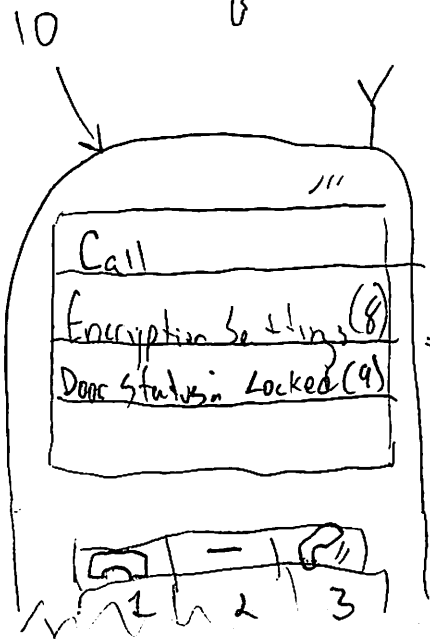 10
Call
Encryption Settings (8)
Door Status: Locked (9)
1 2 3